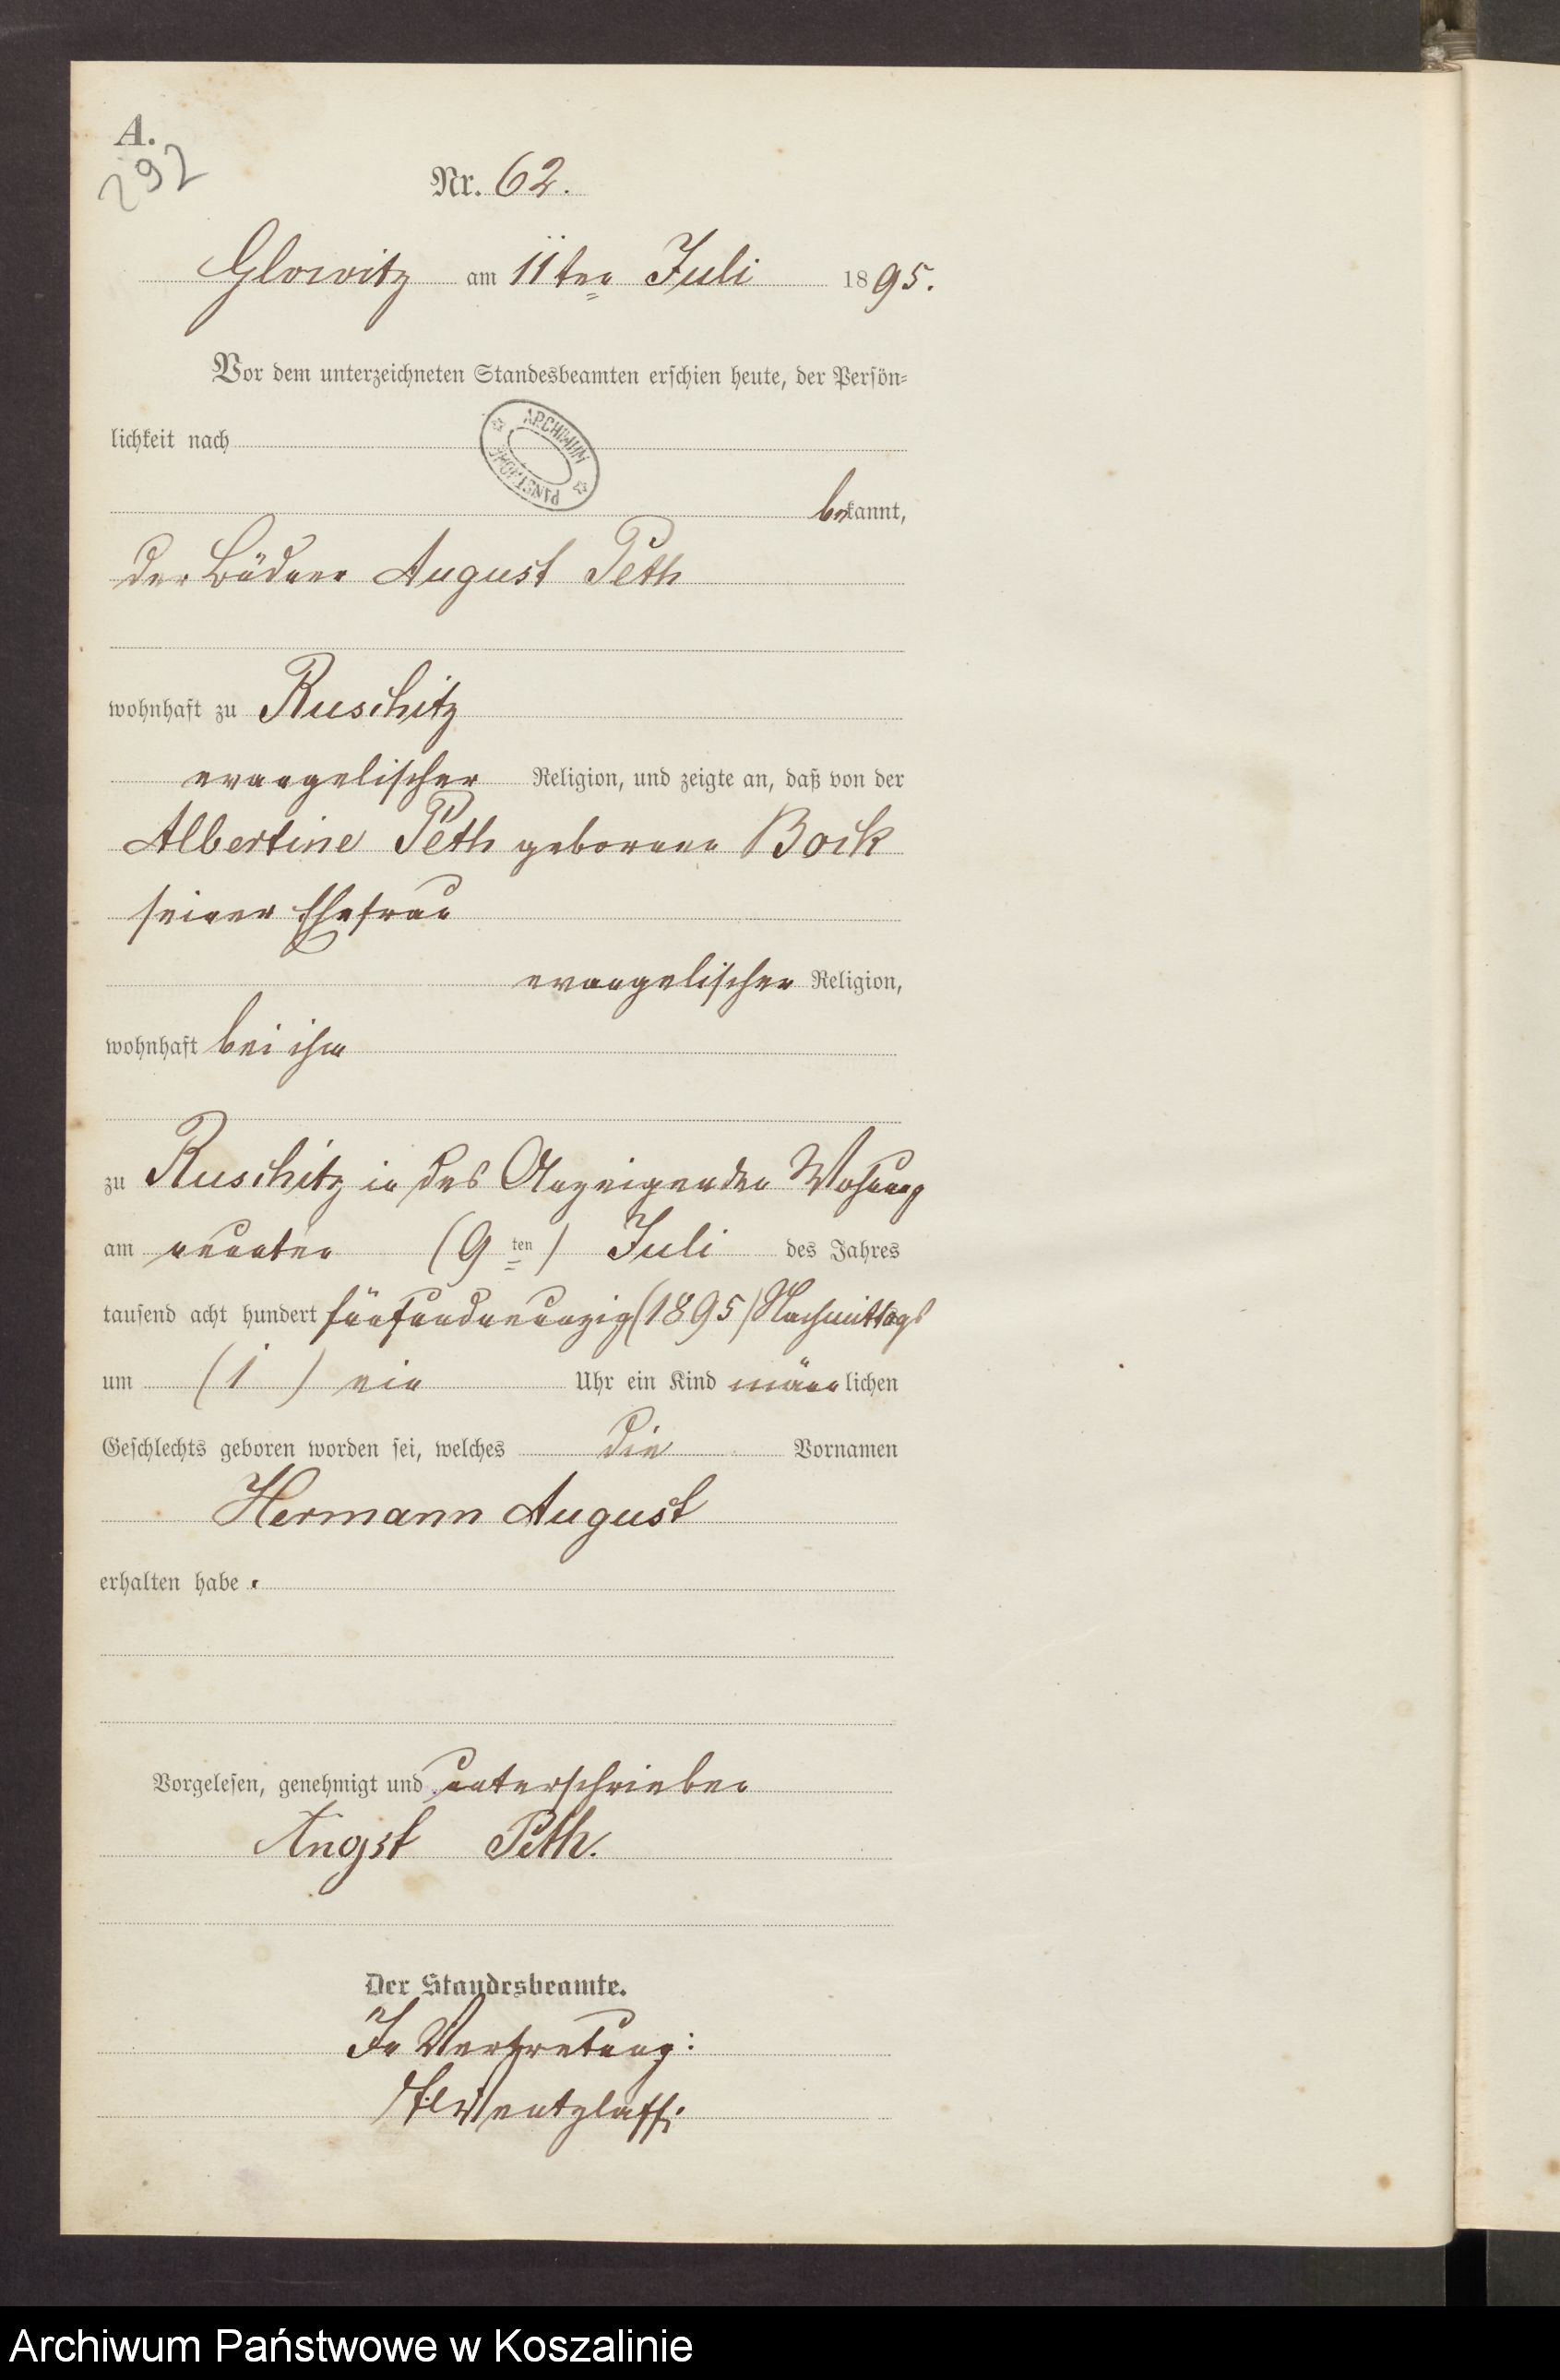 A.
292
Nr. 62.
Glowitz am 11ten Juli 1895.
Vor dem unterzeichneten Standesbeamten erschien heute, der Persön-
lichkeit nach
ARCHIWUM PAŃSTWOWE
bekannt,
der Büdner August Peth
wohnhaft zu Ruschitz
evangelischer Religion, und zeigte an, daß von der
Albertine Peth geborenen Bock
seiner Ehefrau
evangelischer Religion,
wohnhaft bei ihm
zu Ruschitz in des Anzeigenden Wohnung
am neunten (9ten) Juli des Jahres
tausend acht hundert fünfundneunzig (1895) Nachmittags
um (1) ein Uhr ein Kind männlichen
Geschlechts geboren worden sei, welches die Vornamen
Hermann August
erhalten habe.
Vorgelesen, genehmigt und unterschrieben
Angst Peth.
Der Standesbeamte.
In Vertretung:
Wentzlaff.
Archiwum Państwowe w Koszalinie